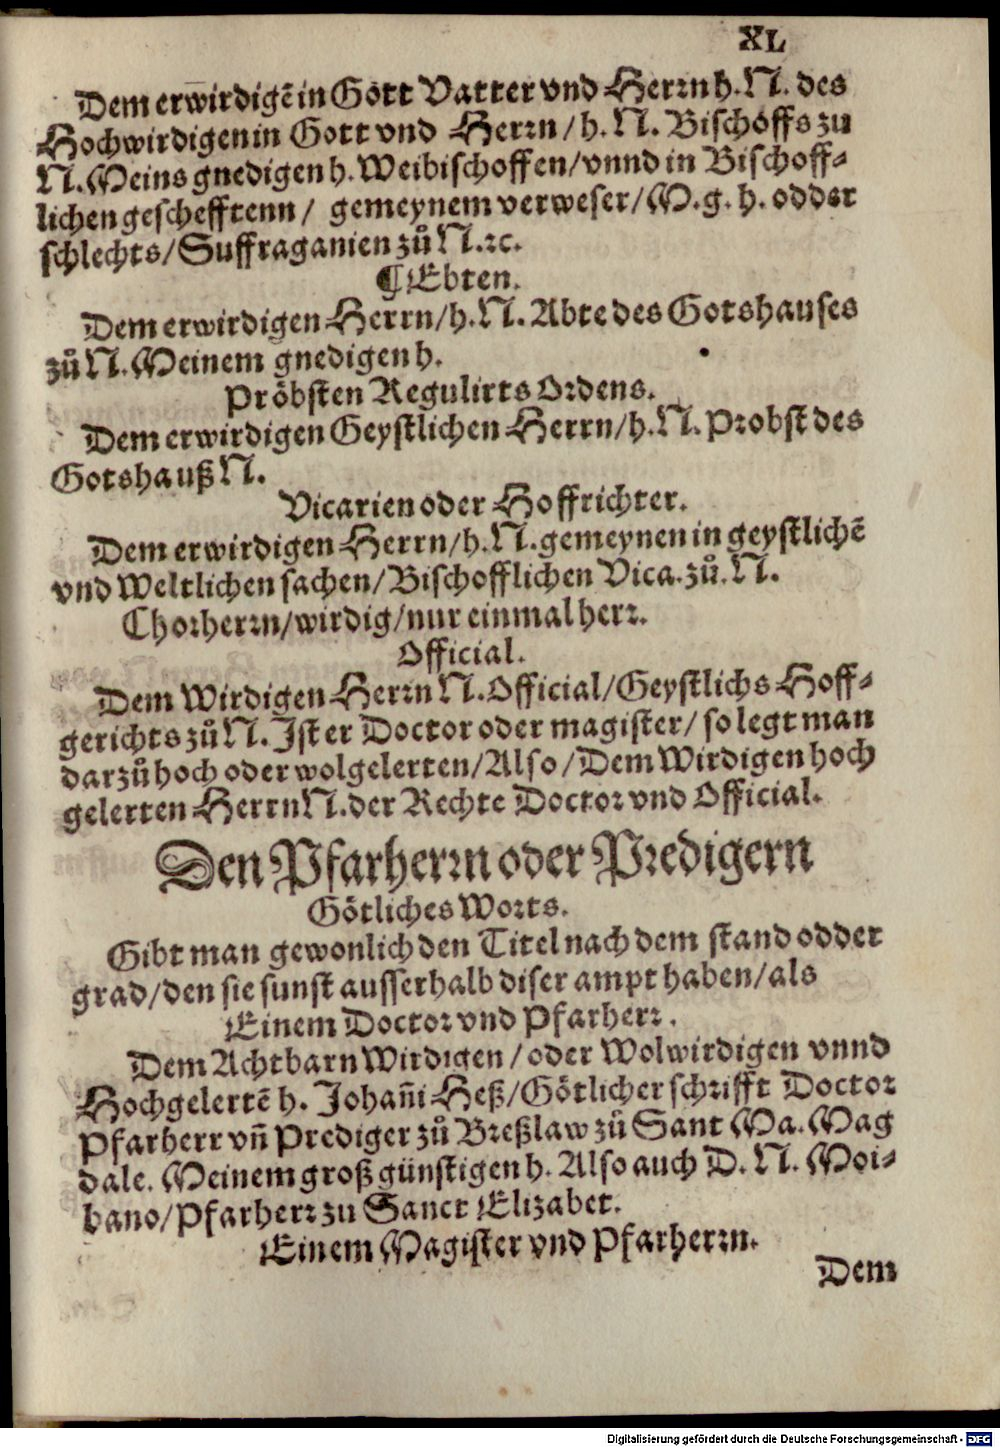 XL
Dem erwirdigē in Gott Vatter vnd Herrn h. N. des
Hochwirdigen in Gott vnd Herrn / h. N. Bischoffs zu
N. Meins gnedigen h. Weibischoffen / vnnd in Bischoff⸗
lichen geschefftenn / gemeynem verweser / M. g. h. odder
schlechts / Suffraganien zů N. ꝛc.
¶ Ebten.
Dem erwirdigen Herrn / h. N. Abte des Gotshauses
zů N. Meinem gnedigen h.
Pröbsten Regulirts Ordens.
Dem erwirdigen Geystlichen Herrn / h. N. Probst des
Gotshauß N.
Vicarien oder Hoffrichter.
Dem erwirdigen Herrn / h. N. gemeynen in geystlichē
vnd Weltlichen sachen / Bischofflichen Vica. zů. N.
Chorherrn / wirdig / nur einmal herr.
Official.
Dem Wirdigen Herrn N. Official / Geystlichs Hoff⸗
gerichts zů N. Ist er Doctor oder magister / so legt man
darzů hoch oder wolgelerten / Also / Dem Wirdigen hoch
gelerten Herrn N. der Rechte Doctor vnd Official.
Den Pfarherrn oder Predigern
Götliches Worts.
Gibt man gewonlich den Titel nach dem stand odder
grad / den sie sunst ausserhalb diser ampt haben / als
Einem Doctor vnd Pfarherr.
Dem Achtbarn Wirdigen / oder Wolwirdigen vnnd
Hochgelertē h. Johañi Heß / Götlicher schrifft Doctor
Pfarherr vñ Prediger zů Breßlaw zů Sant Ma. Mag
dale. Meinem groß günstigen h. Also auch D. N. Moi⸗
bano / Pfarherr zu Sanct Elizabet.
Einem Magister vnd Pfarherrn.
Dem
Digitalisierung gefördert durch die Deutsche Forschungsgemeinschaft - DFG